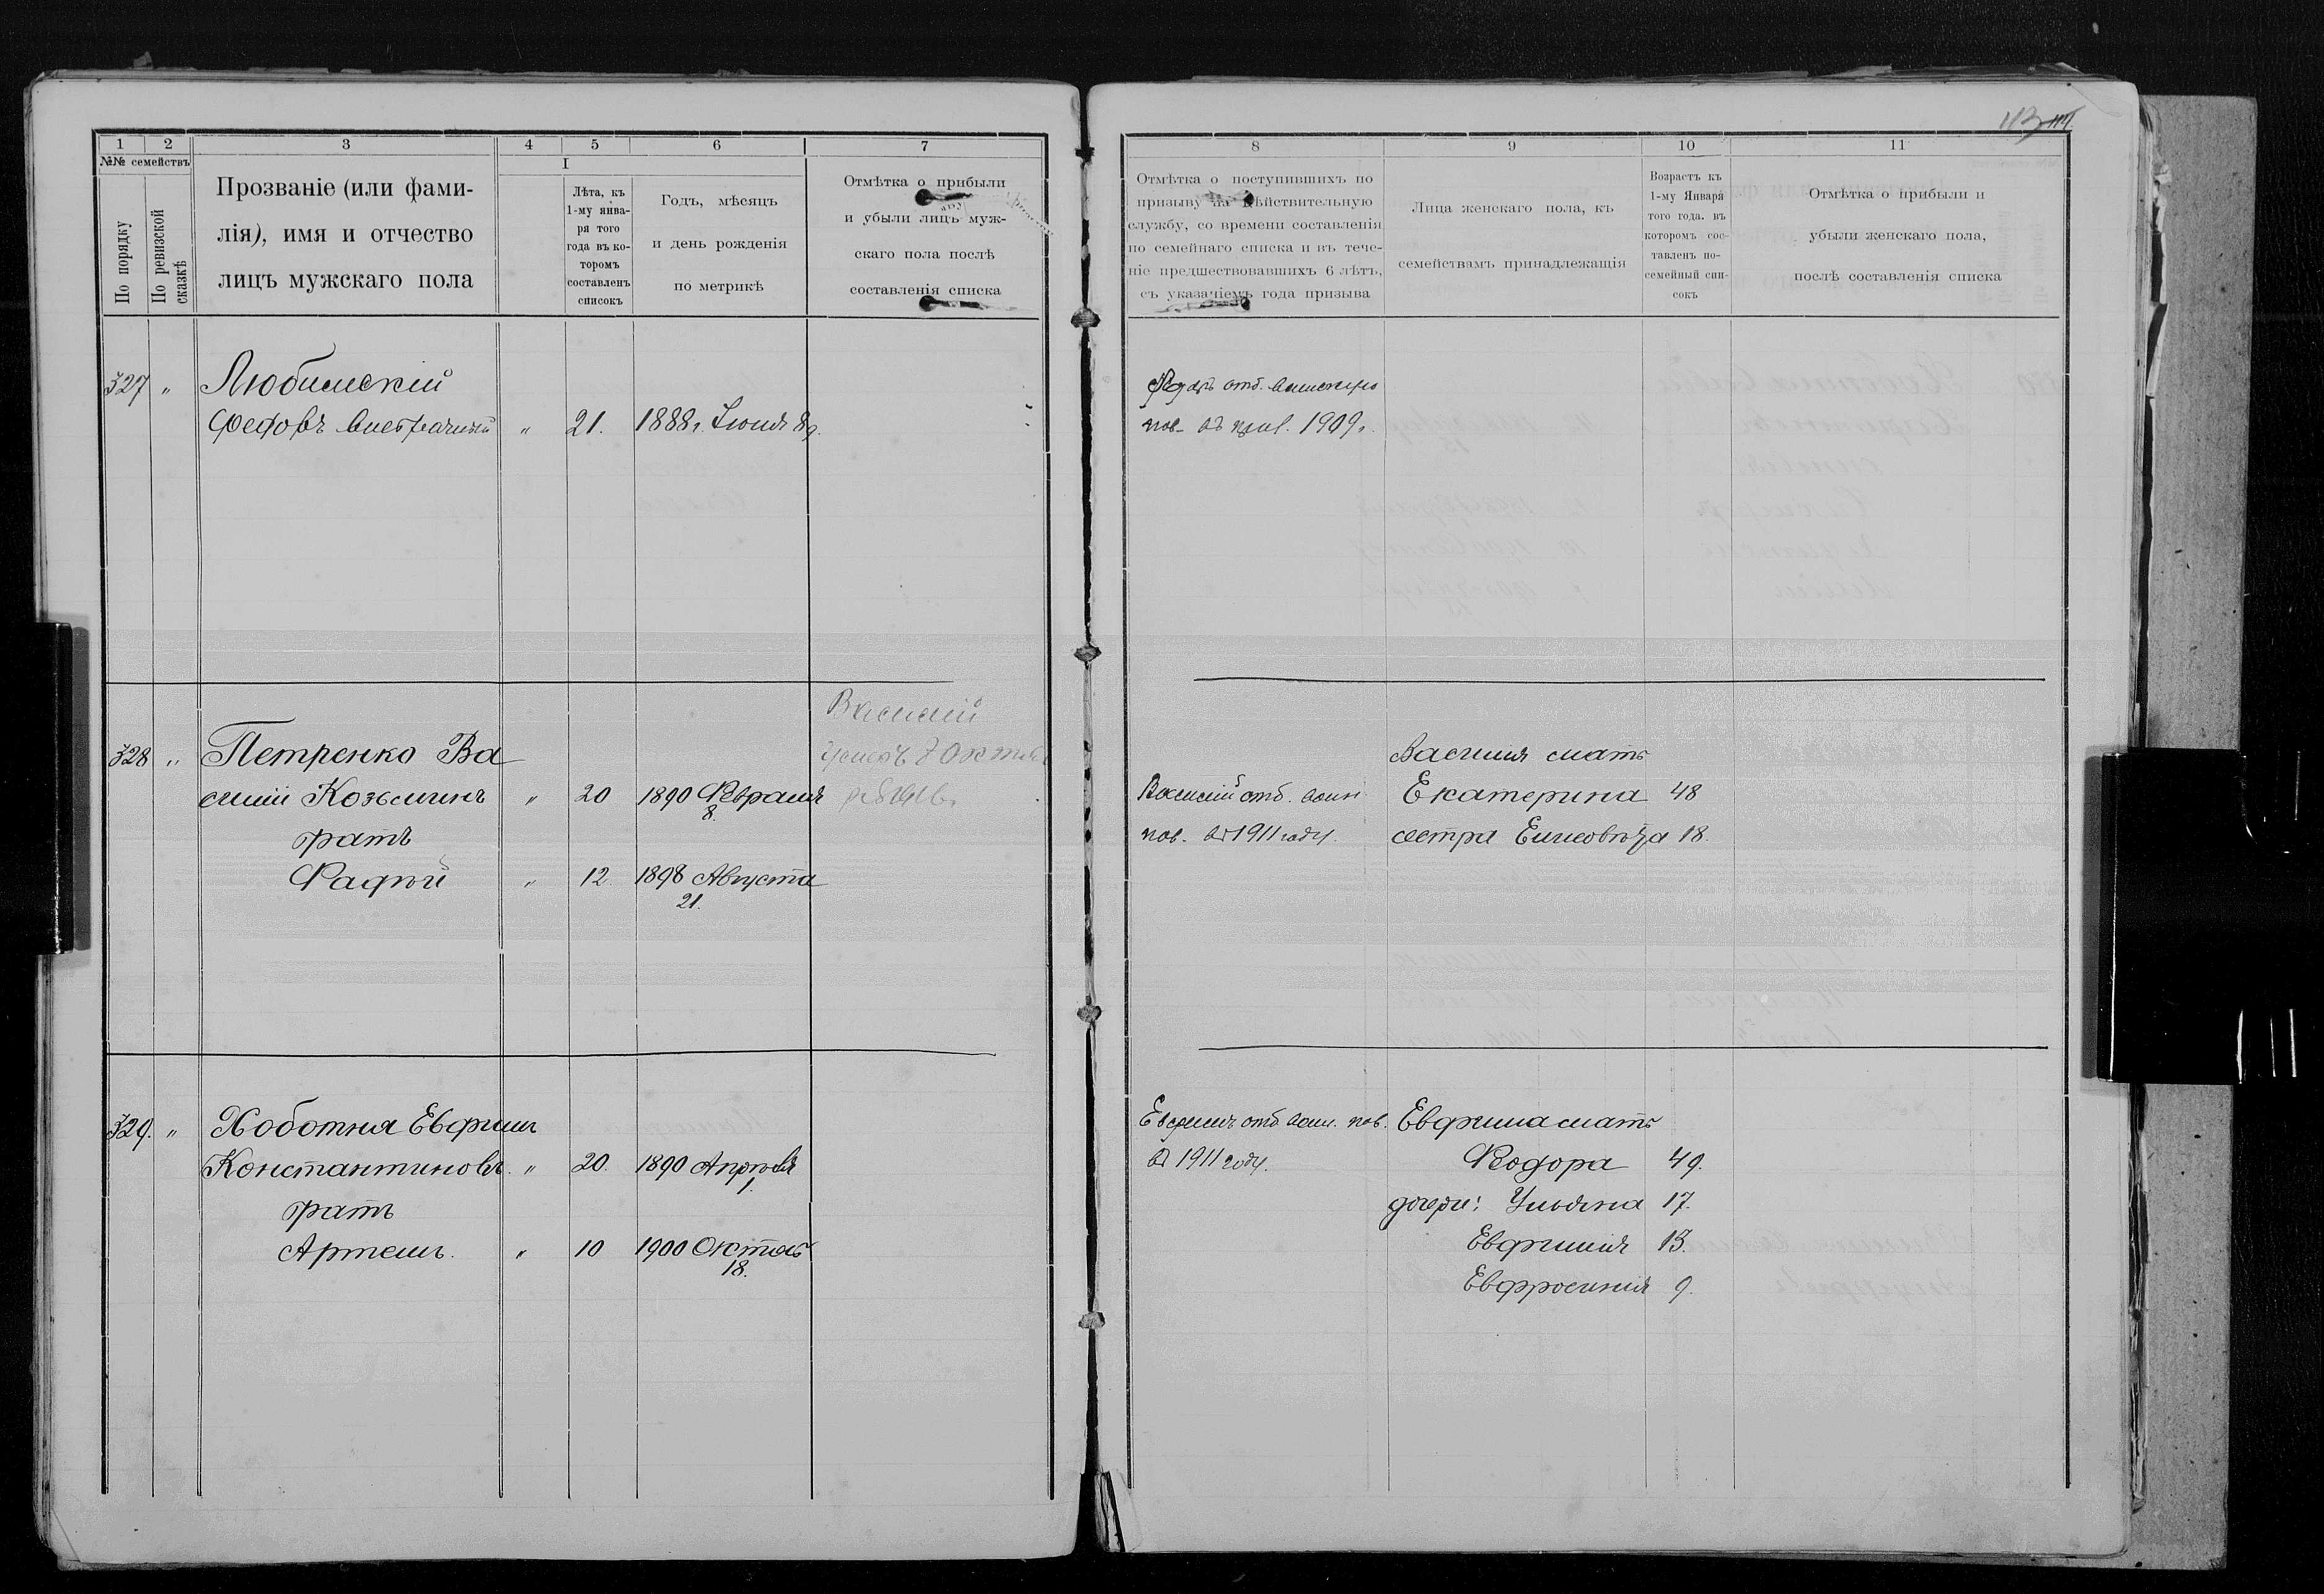 1
2
3
4
5
6
7
№№ семействъ
По порядку
По ревизской сказкѣ
Прозваніе (или фами-
лія), имя и отчество
лицъ мужскаго пола
I
Лѣта, къ
1-му янва-
ря того
года въ ко-
торомъ
составленъ
списокъ
Годъ, мѣсяцъ
и день рожденія
по метрикѣ
Отмѣтка о прибыли
и убыли лицъ муж-
скаго пола послѣ
составленія списка
327 " Любимскій
" 21. 1888г. Іюня 8д.
328 " Петренко Ва
силій Козьминъ " 20 1890 Февраля
8.
братъ
Фадѣй " 12 1898 Августа
21.
Василій
329. " Хоботня Евфимъ
Константиновъ. " 20. 1890 Апрѣля
1.
братъ
Артемъ. " 10 1900 Октяб
18.
8
9
10
11
Отмѣтка о поступившихъ по
призыву на дѣйствительную
службу, со времени составленія
по семейнаго списка и въ тече-
ніе предшествовавшихъ 6 лѣтъ,
съ указаніемъ года призыва
Лица женскаго пола, къ
семействамъ принадлежащія
Возрастъ къ
1-му Января
того года, въ
которомъ сос-
тавленъ по-
семейный спи-
сокъ
Отмѣтка о прибыли и
убыли женскаго пола,
послѣ составленія списка
отб. воинскую
пов. въ приз. 1909г.
Василія мать
Василій отб. воин Екатерина 48
пов. въ 1911 году. сестра Елисовѣта 18.
Евфимъ отб воин. пов. Евфима мать
въ 1911 году. Феодора 49.
дочери: Ульяна 17.
Евфимія 13.
Евфросинія 9.